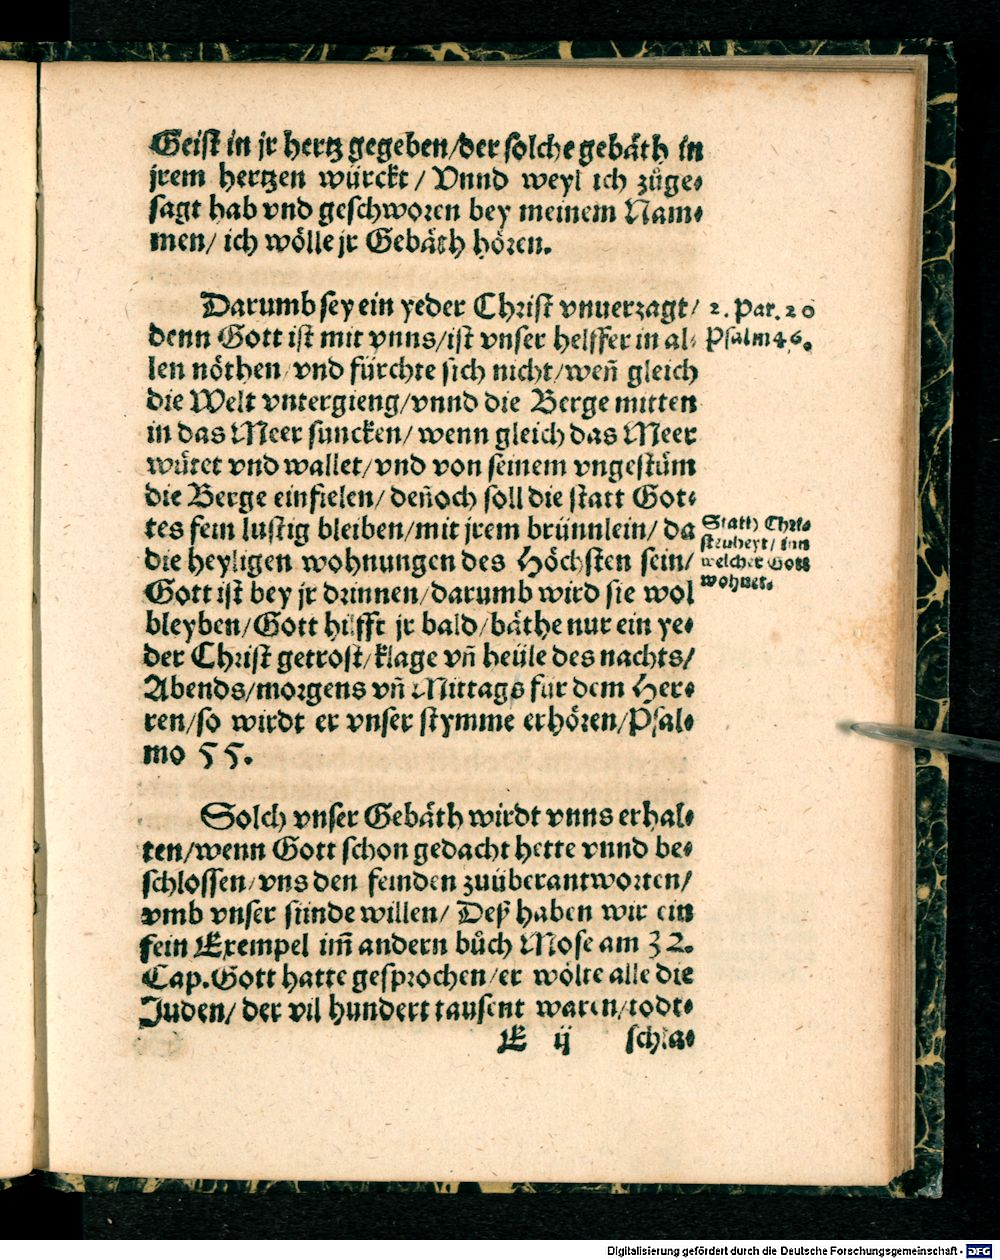 Geiſt in jr hertz gegeben/der ſolche gebäth in
jrem hertzen würckt/ Vnnd weyl ich zůge⸗
ſagt hab vnd geſchworen bey meinem Nam⸗
men/ ich wölle jr Gebäth hören.
Darumb ſey ein yeder Chriſt vnuerzagt/
2. Par. 20
denn Gott iſt mit vnns/iſt vnſer helffer in al⸗
Pſalm 46.
len nöthen/vnd fürchte ſich nicht/weñ gleich
die Welt vntergieng/vnnd die Berge mitten
in das Meer ſuncken/ wenn gleich das Meer
wütet vnd wallet/vnd von ſeinem vngeſtüm
die Berge einfielen/ deñoch ſoll die ſtatt Got⸗
tes fein luſtig bleiben/mit jrem brünnlein/ da
die heyligen wohnungen des Höchſten ſein/
Statt Chri⸗
ſtenheyt/ inn
welcher Gott
wohnet.
Gott iſt bey jr drinnen/darumb wird ſie wol
bleyben/Gott hilfft jr bald/bäthe nur ein ye⸗
der Chriſt getroſt/klage vñ heüle des nachts/
Abends/morgens vñ Mittags für dem Her⸗
ren/ſo wirdt er vnſer ſtymme erhören/Pſal⸗
mo 55.
Solch vnſer Gebäth wirdt vnns erhal⸗
ten/wenn Gott ſchon gedacht hette vnnd be⸗
ſchloſſen/vns den feinden zuüberantworten/
vmb vnſer ſünde willen/ Deß haben wir ein
fein Exempel im̃ andern bůch Moſe am 32.
Cap. Gott hatte geſprochen/er wölte alle die
Juden/ der vil hundert tauſent waren/todt⸗
E ij ſchla⸗
Digitalisierung gefördert durch die Deutsche Forschungsgemeinschaft - DFG